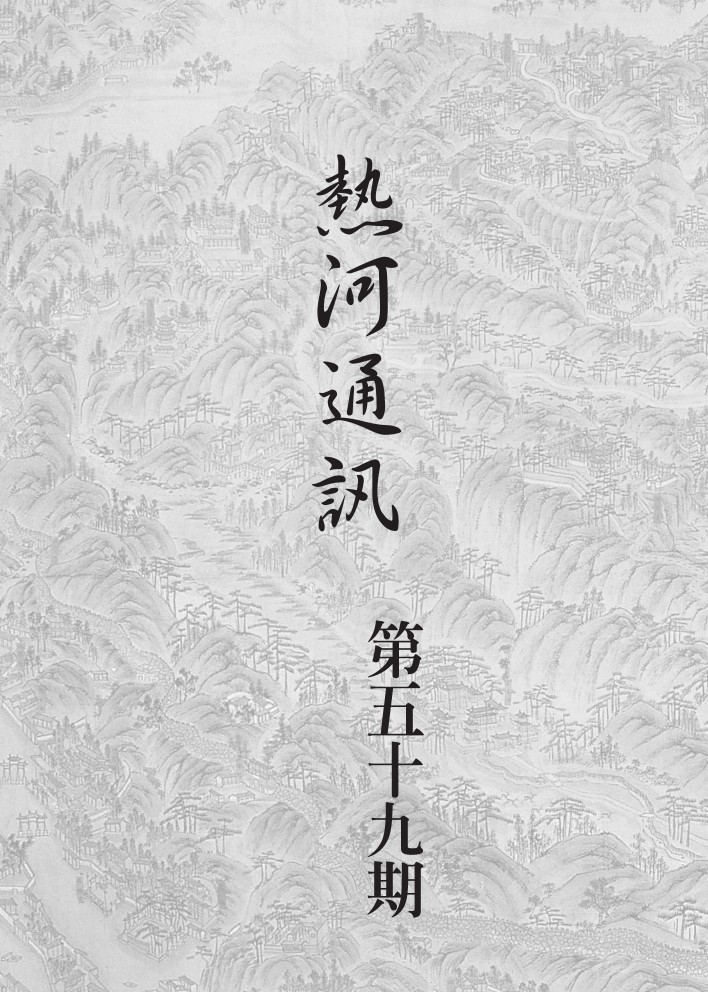 熱河通訊
第五十九期